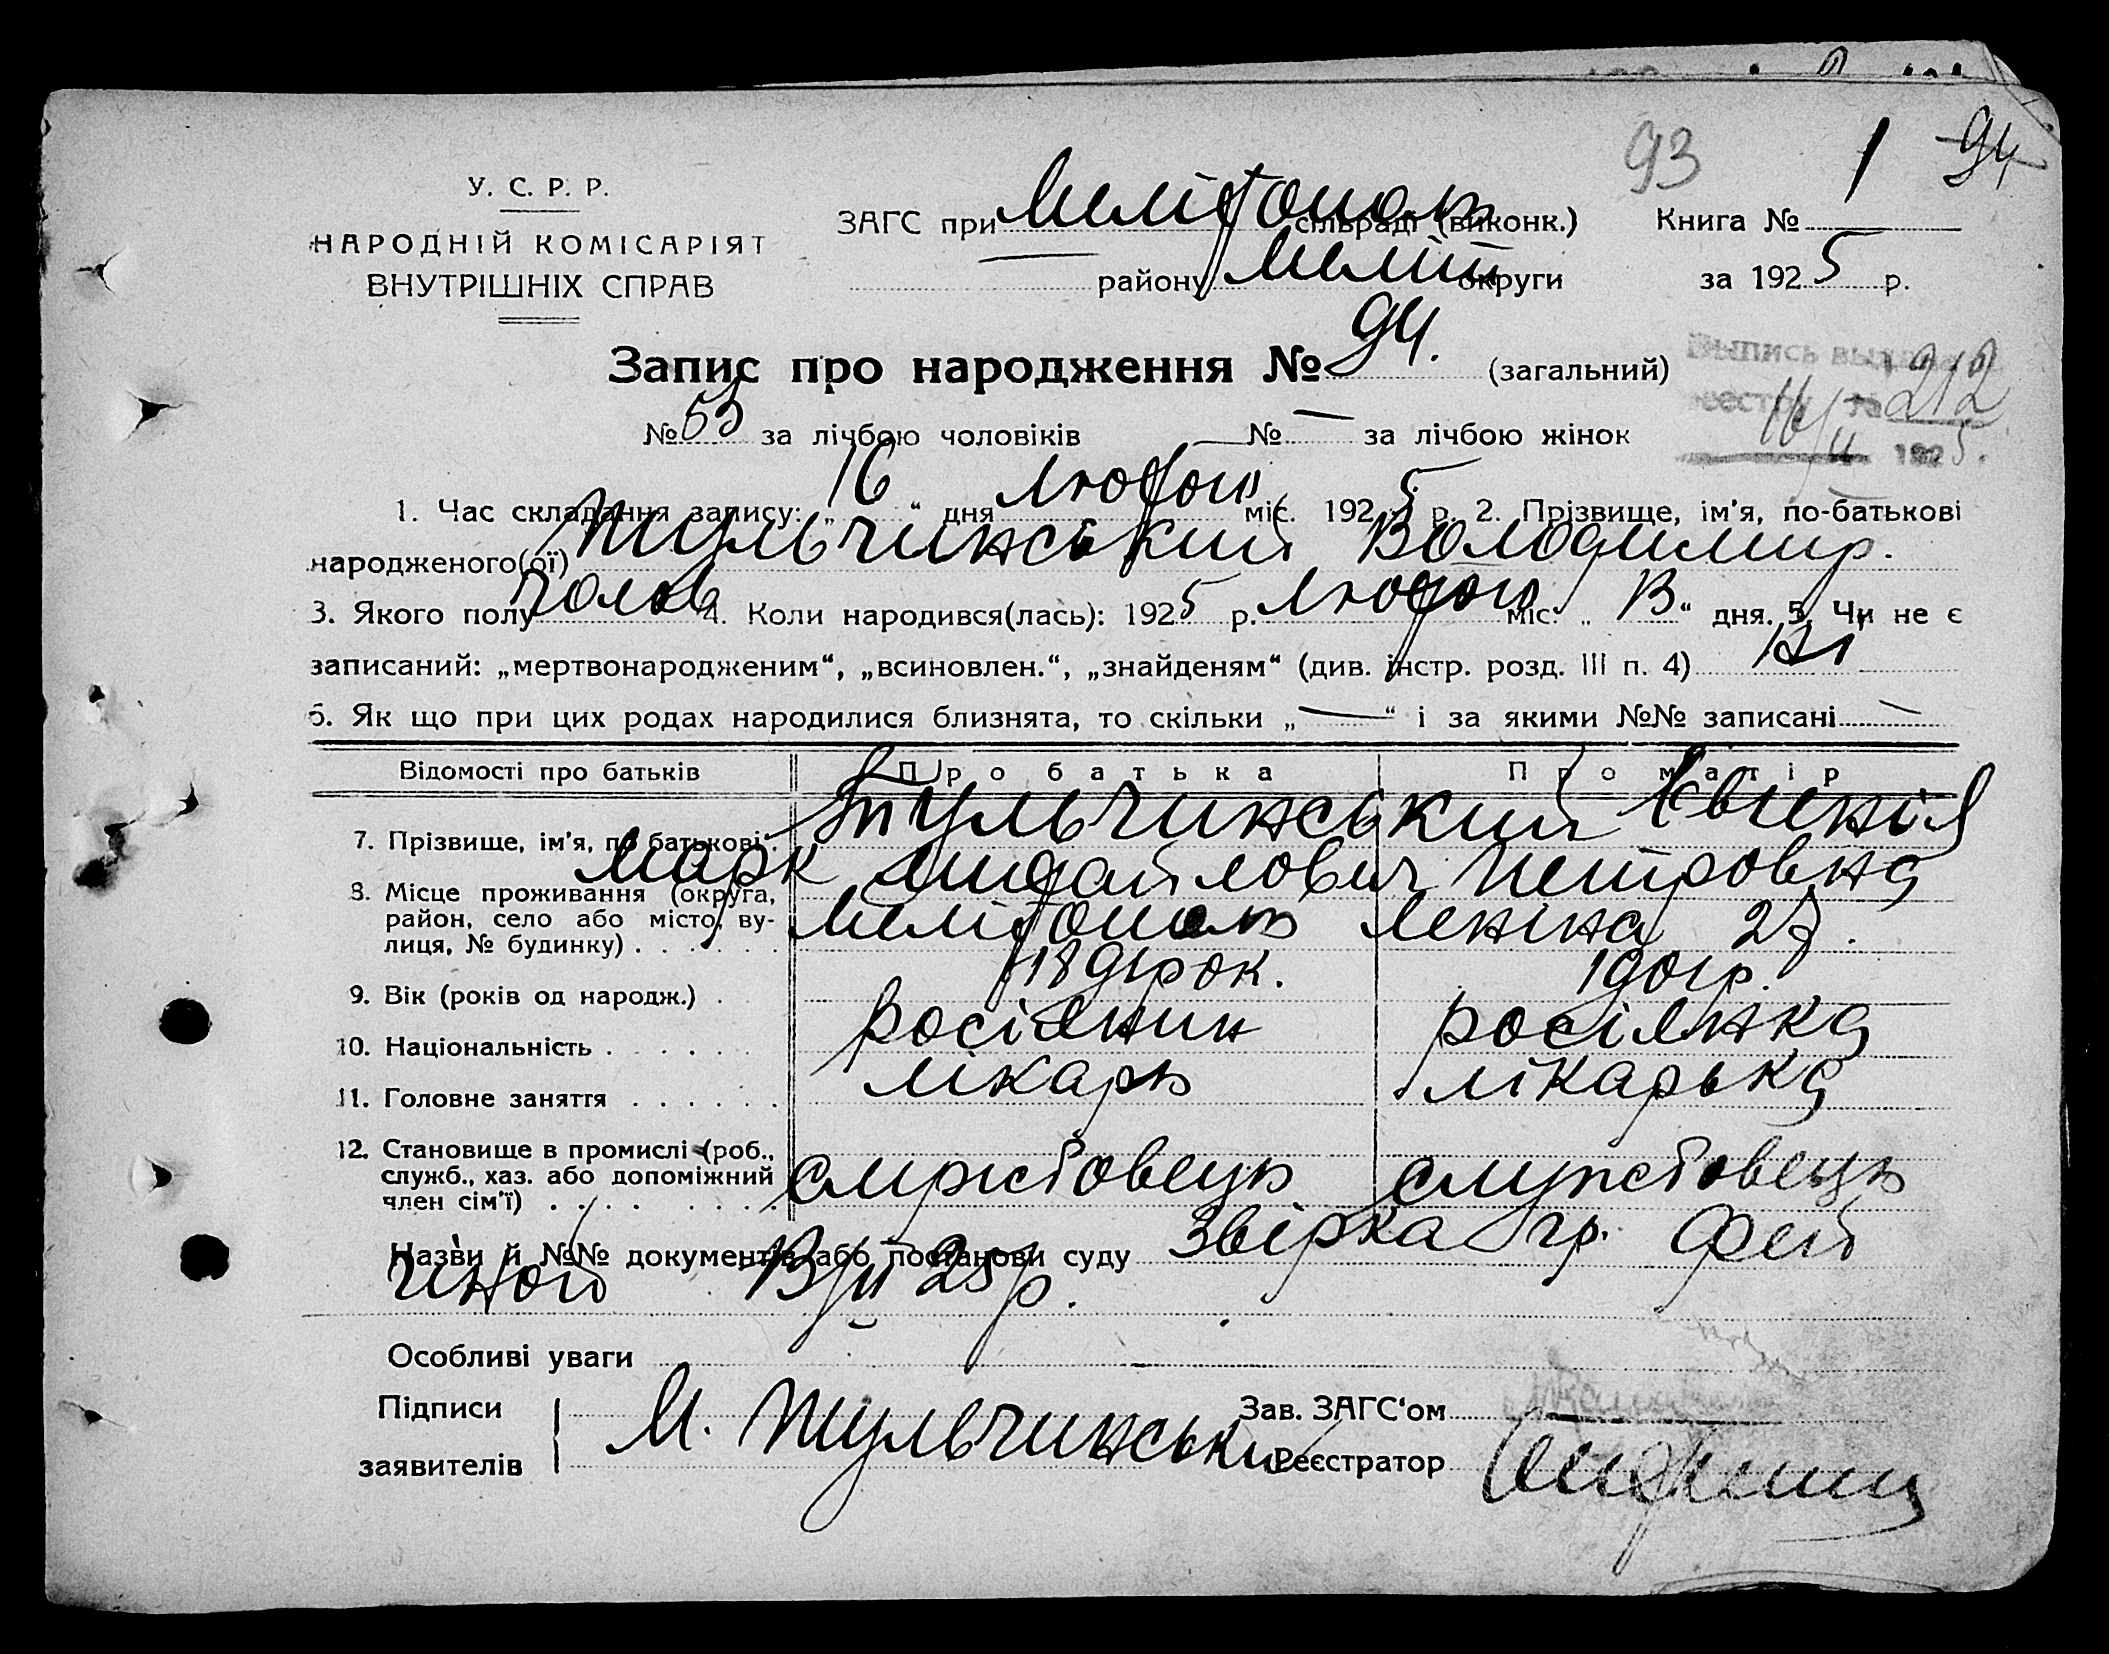 93 1 94
У. С. Р. Р.
НАРОДНІЙ КОМІСАРІЯТ
ВНУТРІШНІХ СПРАВ
ЗАГС при Мелітополь сільраді (виконк.) Книга №
району Меліт округи за 1925 р.
Запис про народження № 94. (загальний)
Выпись 212
№ 53 за лічбою чоловіків № — за лічбою жінок
16/4 1925.
1. Час складання запису: „16“ дня Лютого міс. 1925 р. 2. Прізвище, ім'я, по-батькові
народженого(ої) Тульчинський Володимир.
3. Якого полу чолов 4. Коли народився(лась): 1925 р. Лютого міс. „13“ дня. 5. Чи не є
записаний: „мертвонародженим“, „всиновлен.“, „знайденям“ (див. інстр. розд. III п. 4) ні
6. Як що при цих родах народилися близнята, то скільки „—“ і за якими №№ записані —
Відомості про батьків Про батька Про матір
7. Прізвище, ім'я, по батькові. Тульчинський Євгенія
Марк Михайлович Петровна
8. Місце проживання (округа,
район, село або місто, ву-
лиця, № будинку) . . . . . . Мелітополь Леніна 27.
9. Вік (років од народж.) . 1891 рок. 1901 р.
10. Національність . . . . . . росіянин росіянка
11. Головне заняття . . . . . . лікарь лікарька
12. Становище в промислі (роб.,
служб., хаз. або допоміжний
член сім'ї) . . . . . . . . службовець службовець
Назви й №№ документів або постанови суду Звірка гр. Фей
гіної 13/II 25 р.
Особливі уваги
Підписи Зав. ЗАГС'ом
заявителів М. Тульчинський Реєстратор